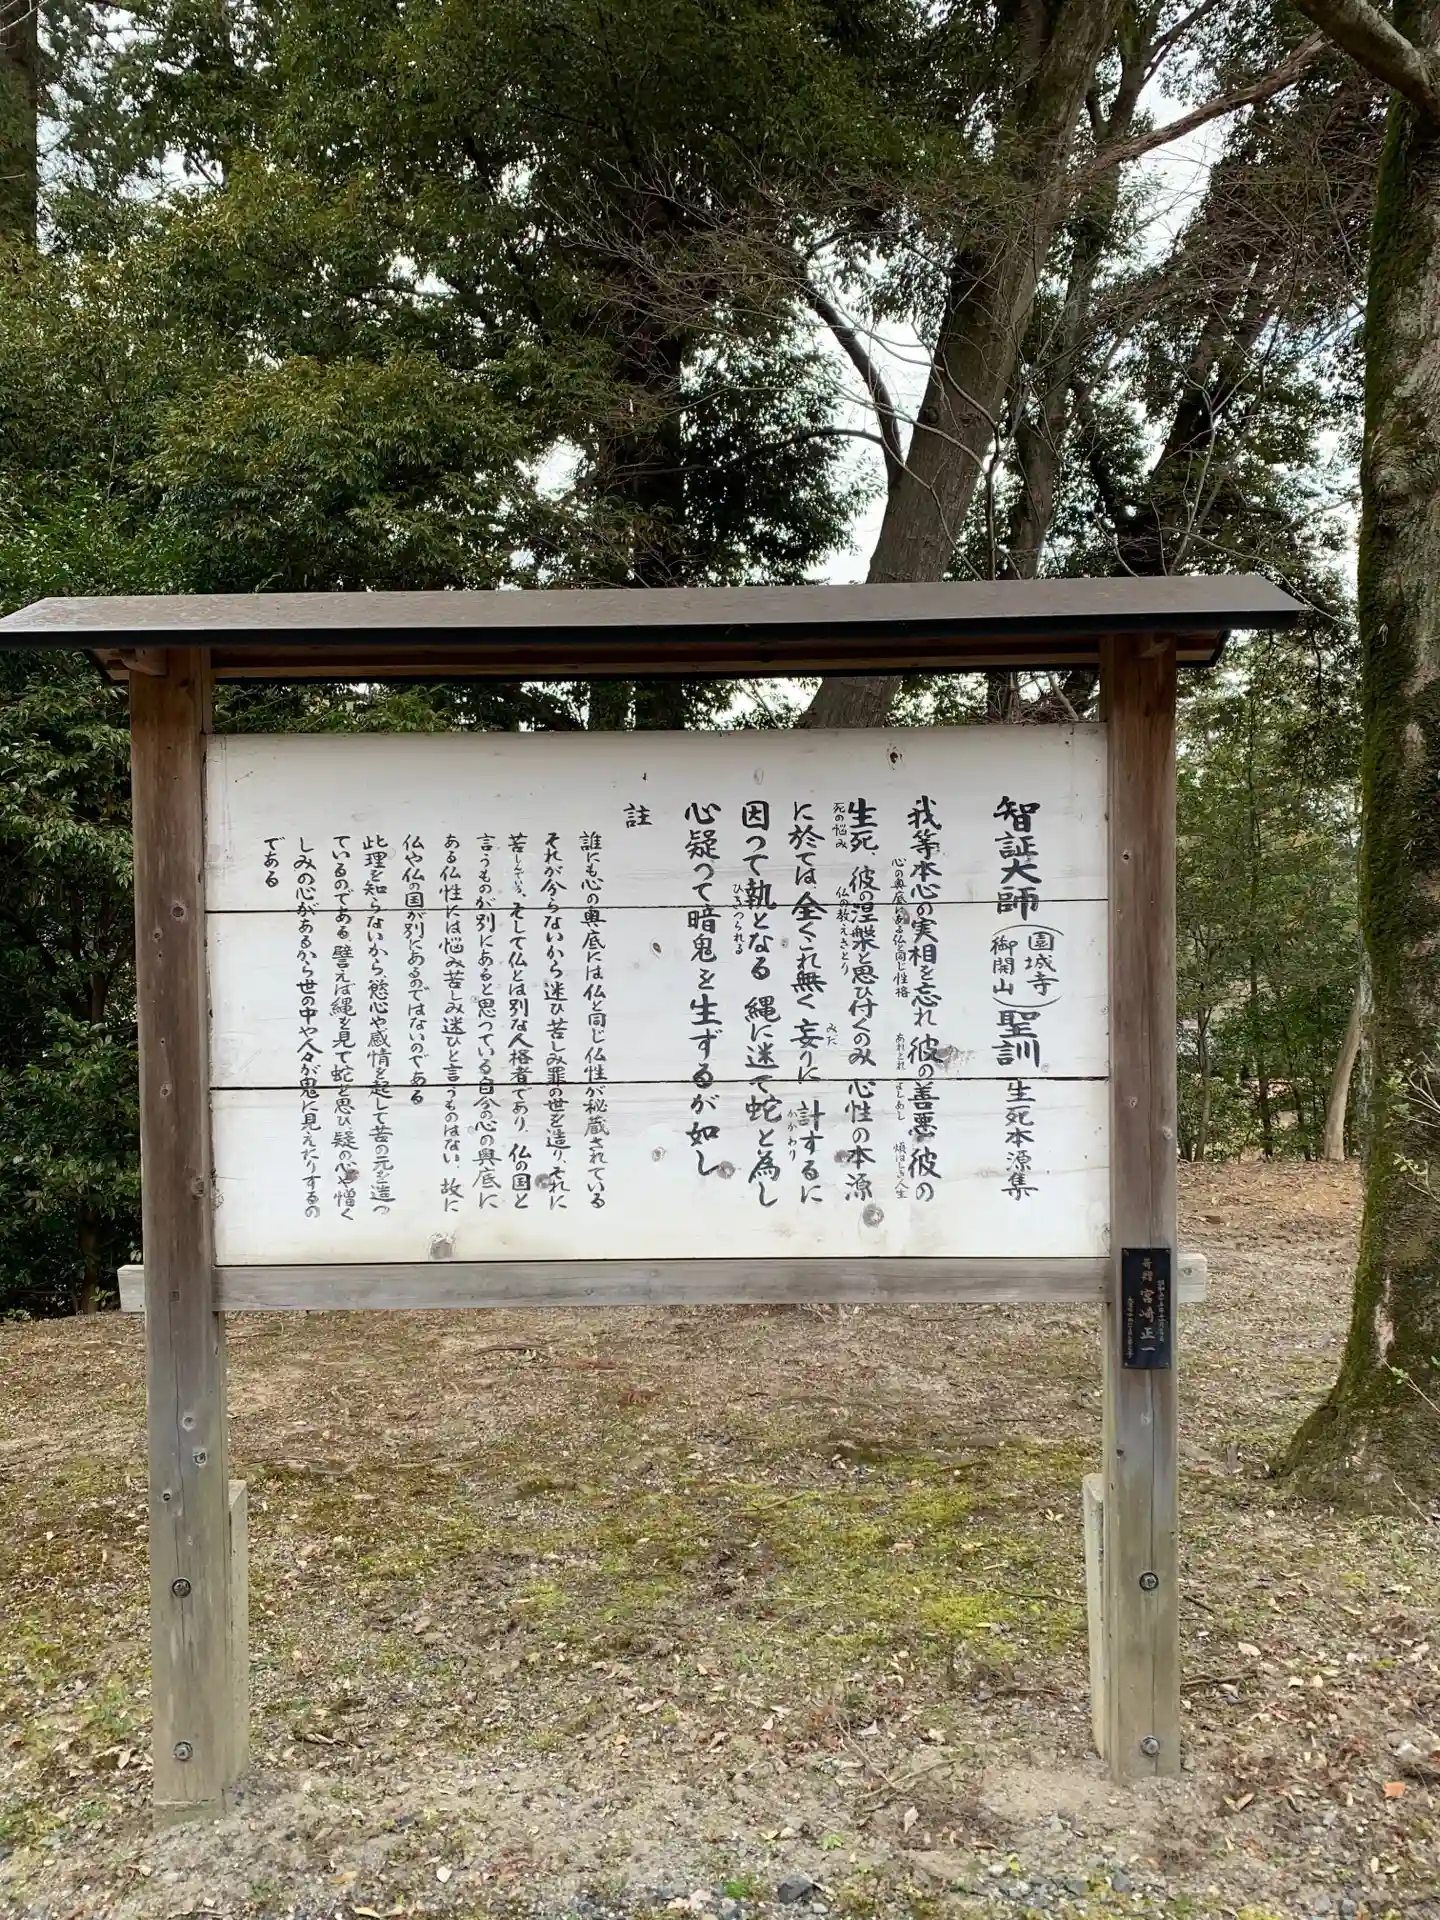 智証大師(園城寺御開山)聖訓 生死本源集
我等本心の実相を忘れ 彼の善悪 彼の
心の奥底にある仏と同じ性格
あれとれ
よしあし
生死、彼の涅槃と思ひ付くのみ 心性の本源
死の悩み
仏の教え
さとり
に於ては、全くこれ無く 妄りに 計するに
みだ
かかわり
因って執となる 縄に迷て蛇と為し
心疑って暗鬼を生ずるが如し
註
誰にも心の奥底には仏と同じ仏性が秘蔵されている
それが分らないから迷ひ苦しみ罪の世を造り、それに
苦しんでいる、そして仏とは別な人格者であり、仏の国と
言うものが別にあると思っている自分の心の奥底に
ある仏性には悩み苦しみ迷ひと言うものはない、故に
仏や仏の国が別にあるのではないのである
此理を知らないから慾心や感情を起して苦の元を造っ
ているのである 譬えば縄を見て蛇と思ひ、疑の心や憎く
しみの心があるから世の中や人々が鬼に見えたりするの
である
寄贈 宮崎正一